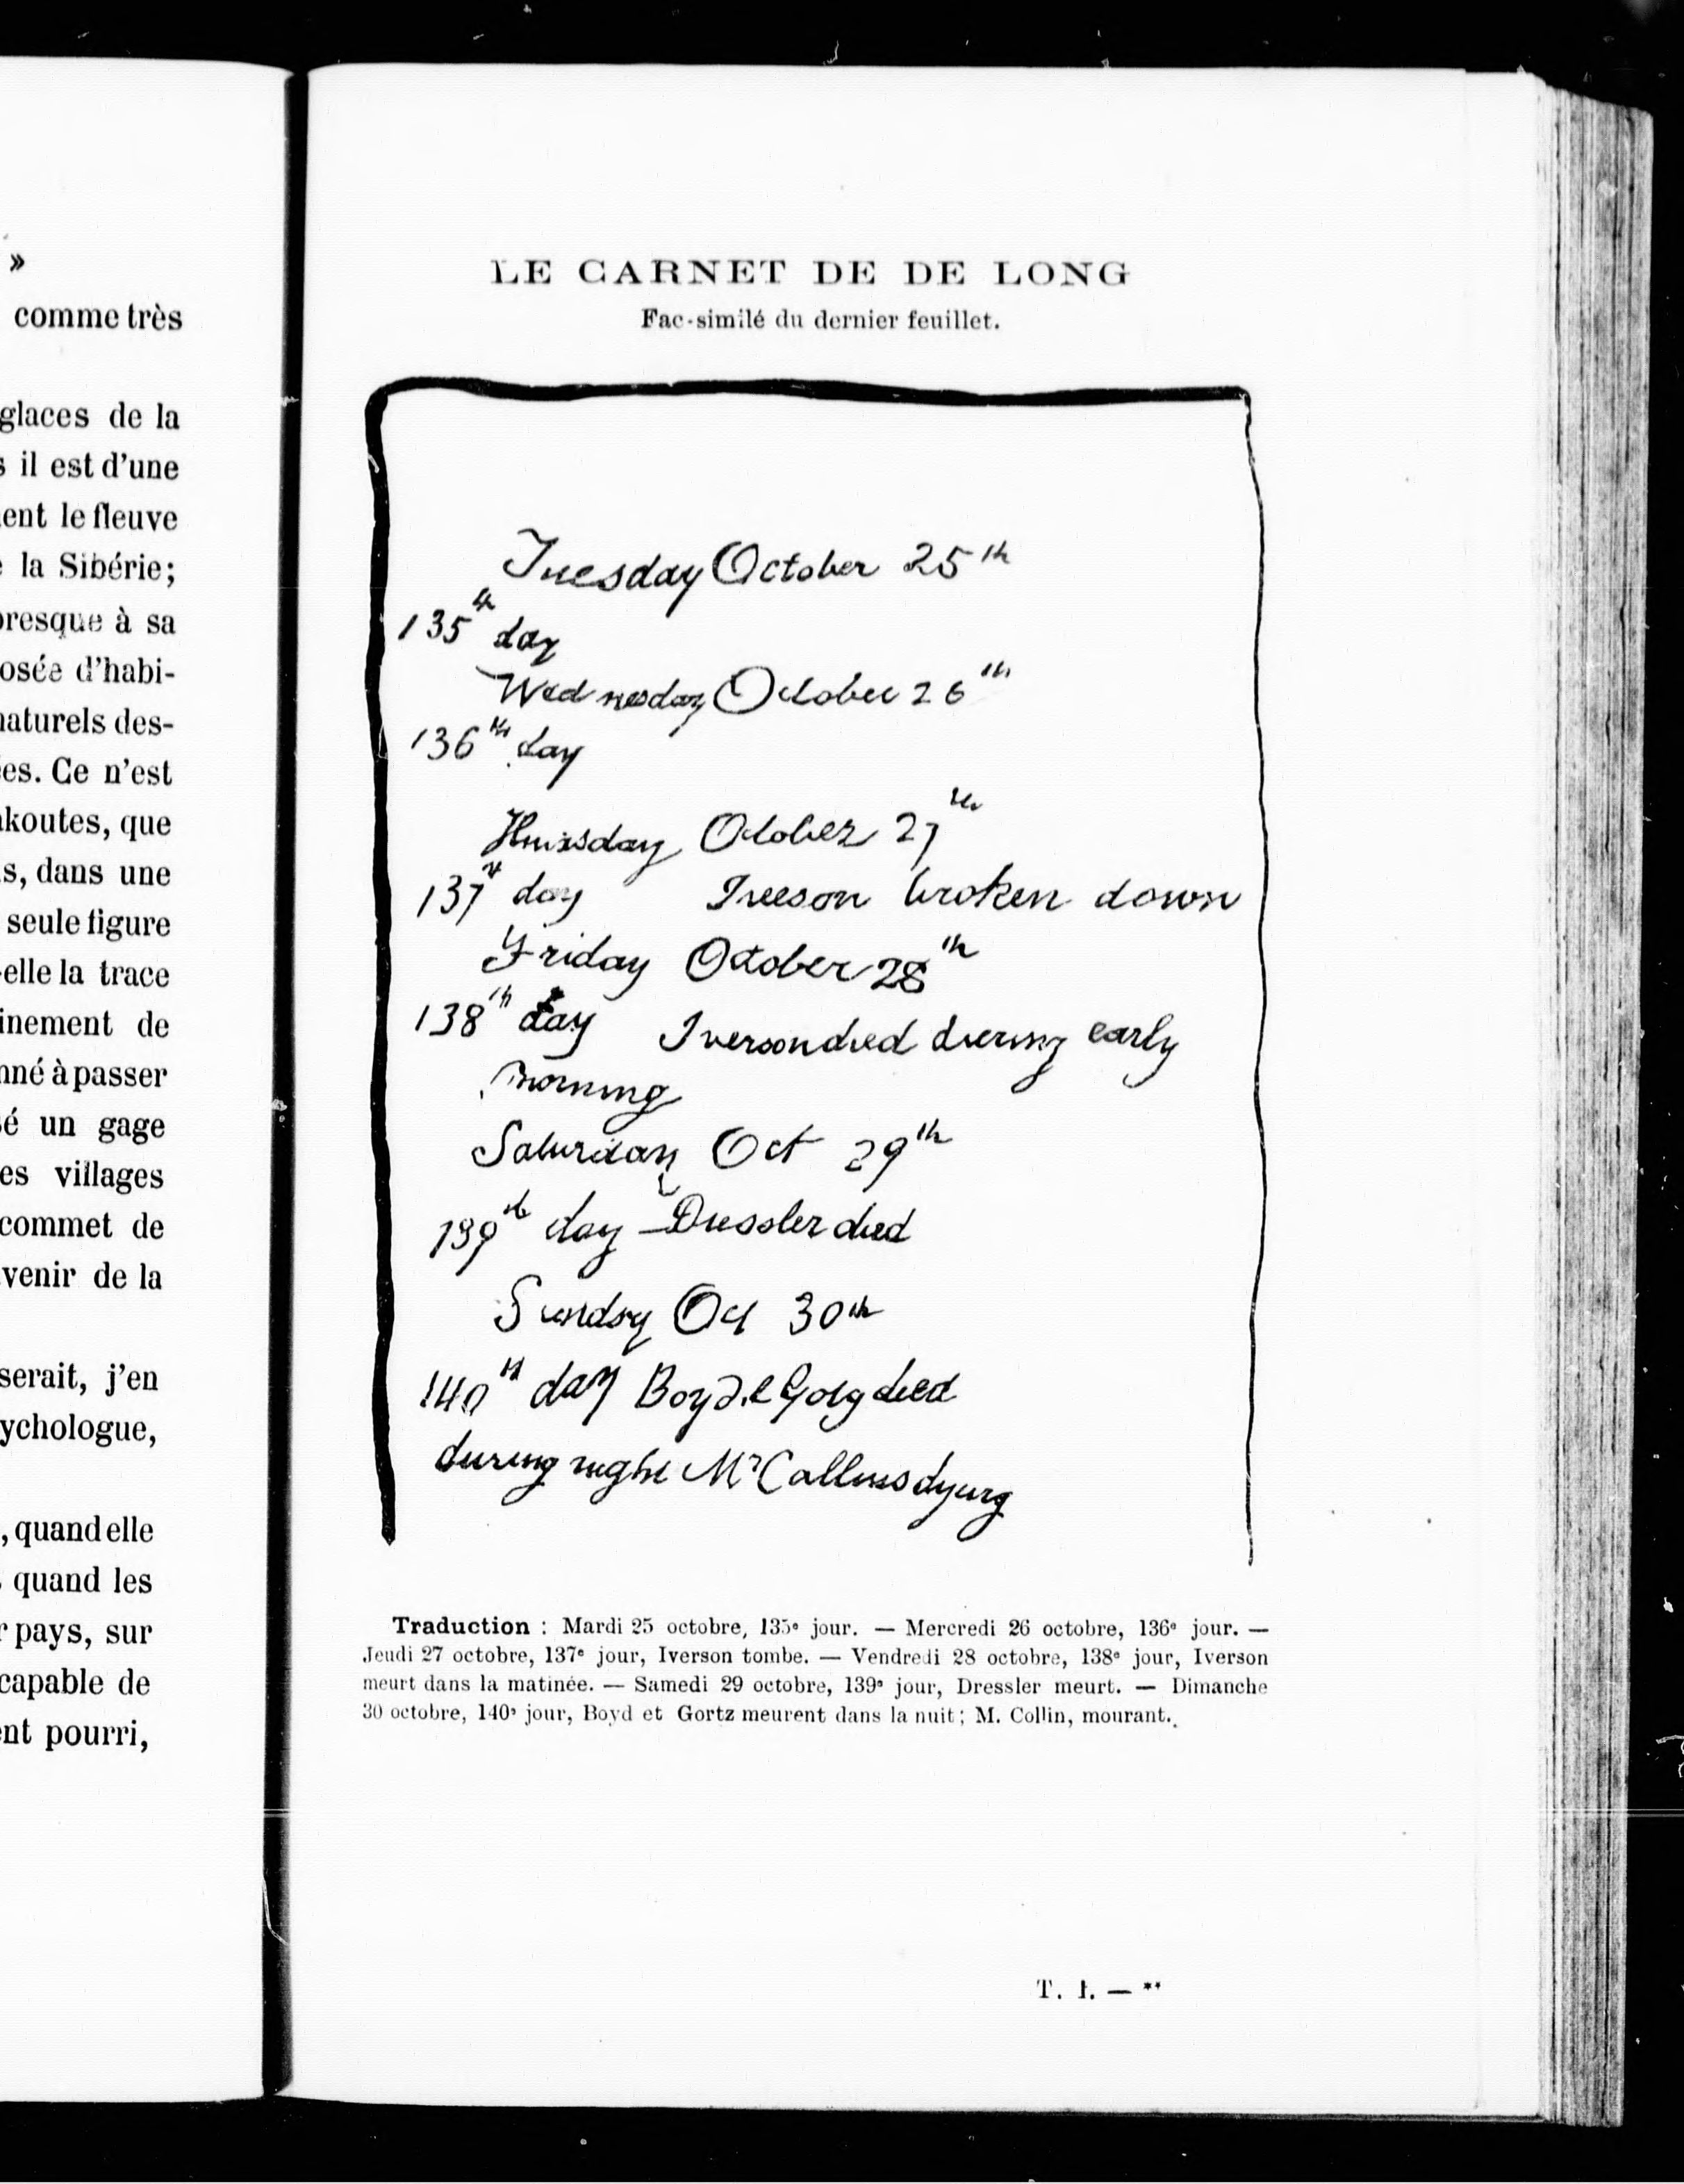 »
comme très
glaces de la
s il est d'une
ent le fleuve
e la Sibérie;
presque à sa
osée d'habi-
naturels des-
es. Ce n'est
akoutes, que
s, dans une
seule figure
-elle la trace
inement de
nné à passer
sé un gage
es villages
commet de
venir de la
serait, j'en
ychologue,
, quand elle
quand les
r pays, sur
capable de
ent pourri,
LE CARNET DE DE LONG
Fac-similé du dernier feuillet.
Tuesday October 25th
135th day
Wednesday October 26th
136th day
Thursday October 27th
137th day Iveeson broken down
Friday October 28th
138th day Iverson died during early
morning
Saturday Oct 29th
139th day Dressler died
Sunday Oct 30th
140th day Boyd & Gortz died
during night Mr Collins dying
Traduction : Mardi 25 octobre, 135e jour. — Mercredi 26 octobre, 136e jour. —
Jeudi 27 octobre, 137e jour, Iverson tombe. — Vendredi 28 octobre, 138e jour, Iverson
meurt dans la matinée. — Samedi 29 octobre, 139e jour, Dressler meurt. — Dimanche
30 octobre, 140e jour, Boyd et Gortz meurent dans la nuit; M. Collin, mourant.
T. I. — **